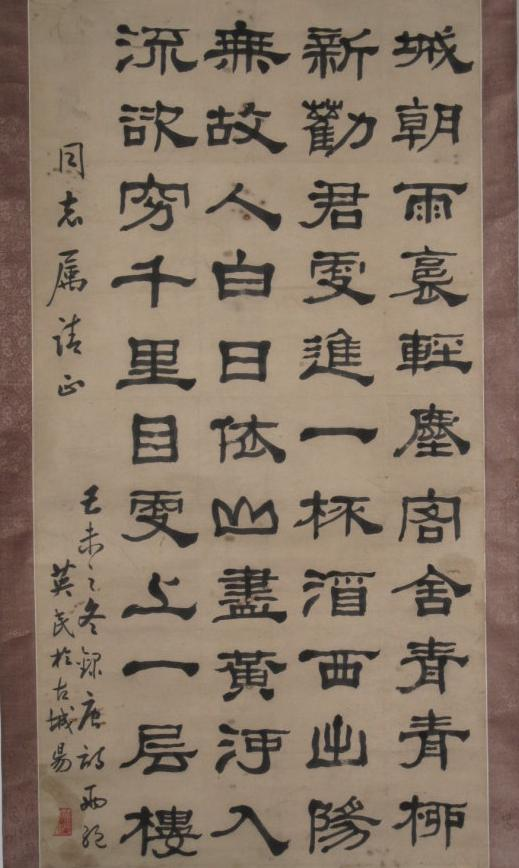 城朝雨裛輕塵客舍青青柳
新勸君更進一杯酒西出陽
無故人白日依山盡黃河入
流欲穷千里目更上一层樓
同志属請正
己未之冬録唐詩兩絶
英民於古城易